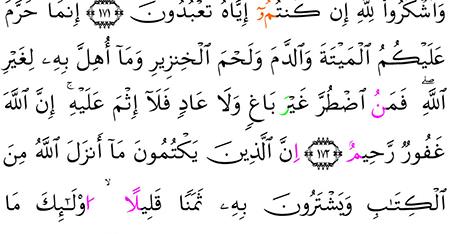 وَاشْكُرُواْ لِلَّهِ إِن كُنتُمُۥٓ إِيَّاهُ تَعْبُدُونَ ١٧١ إِنَّمَا حَرَّمَ
عَلَيْكُمُ الْمَيْتَةَ وَالدَّمَ وَلَحْمَ الْخِنزِيرِ وَمَآ أُهِلَّ بِهِۦ لِغَيْرِ
اللَّهِ ۖ فَمَنُ اضْطُرَّ غَيْرَ بَاغٍ وَلَا عَادٍ فَلَآ إِثْمَ عَلَيْهِ ۚ إِنَّ اللَّهَ
غَفُورٌ رَّحِيمٌ ١٧٢ اِنَّ الَّذِينَ يَكْتُمُونَ مَآ أَنزَلَ اللَّهُ مِنَ
الْكِتَٰبِ وَيَشْتَرُونَ بِهِۦ ثَمَنًا قَلِيلًا ۙ اوْلَٰٓئِكَ مَا